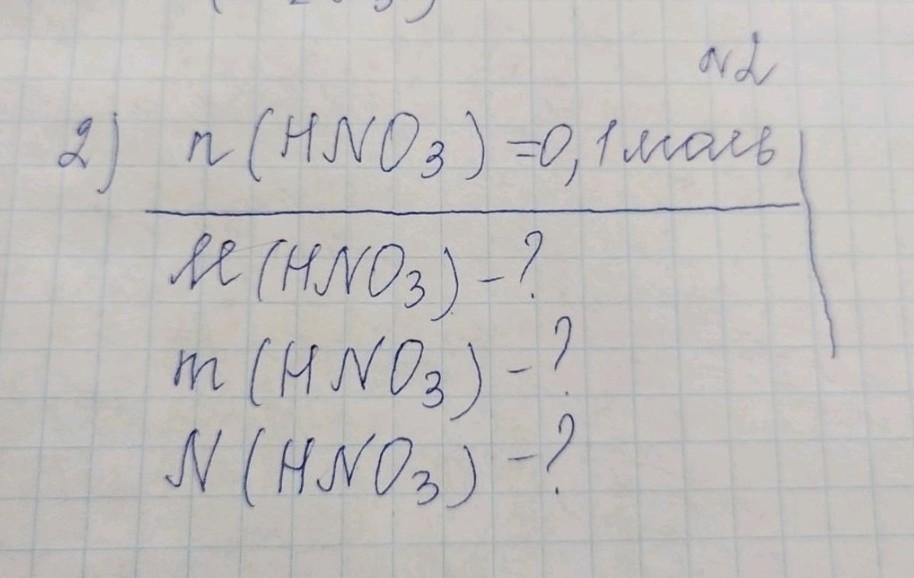 N2
2) n(HNO3)=0,1моль
M(HNO3)-?
m(HNO3)-?
N(HNO3)-?